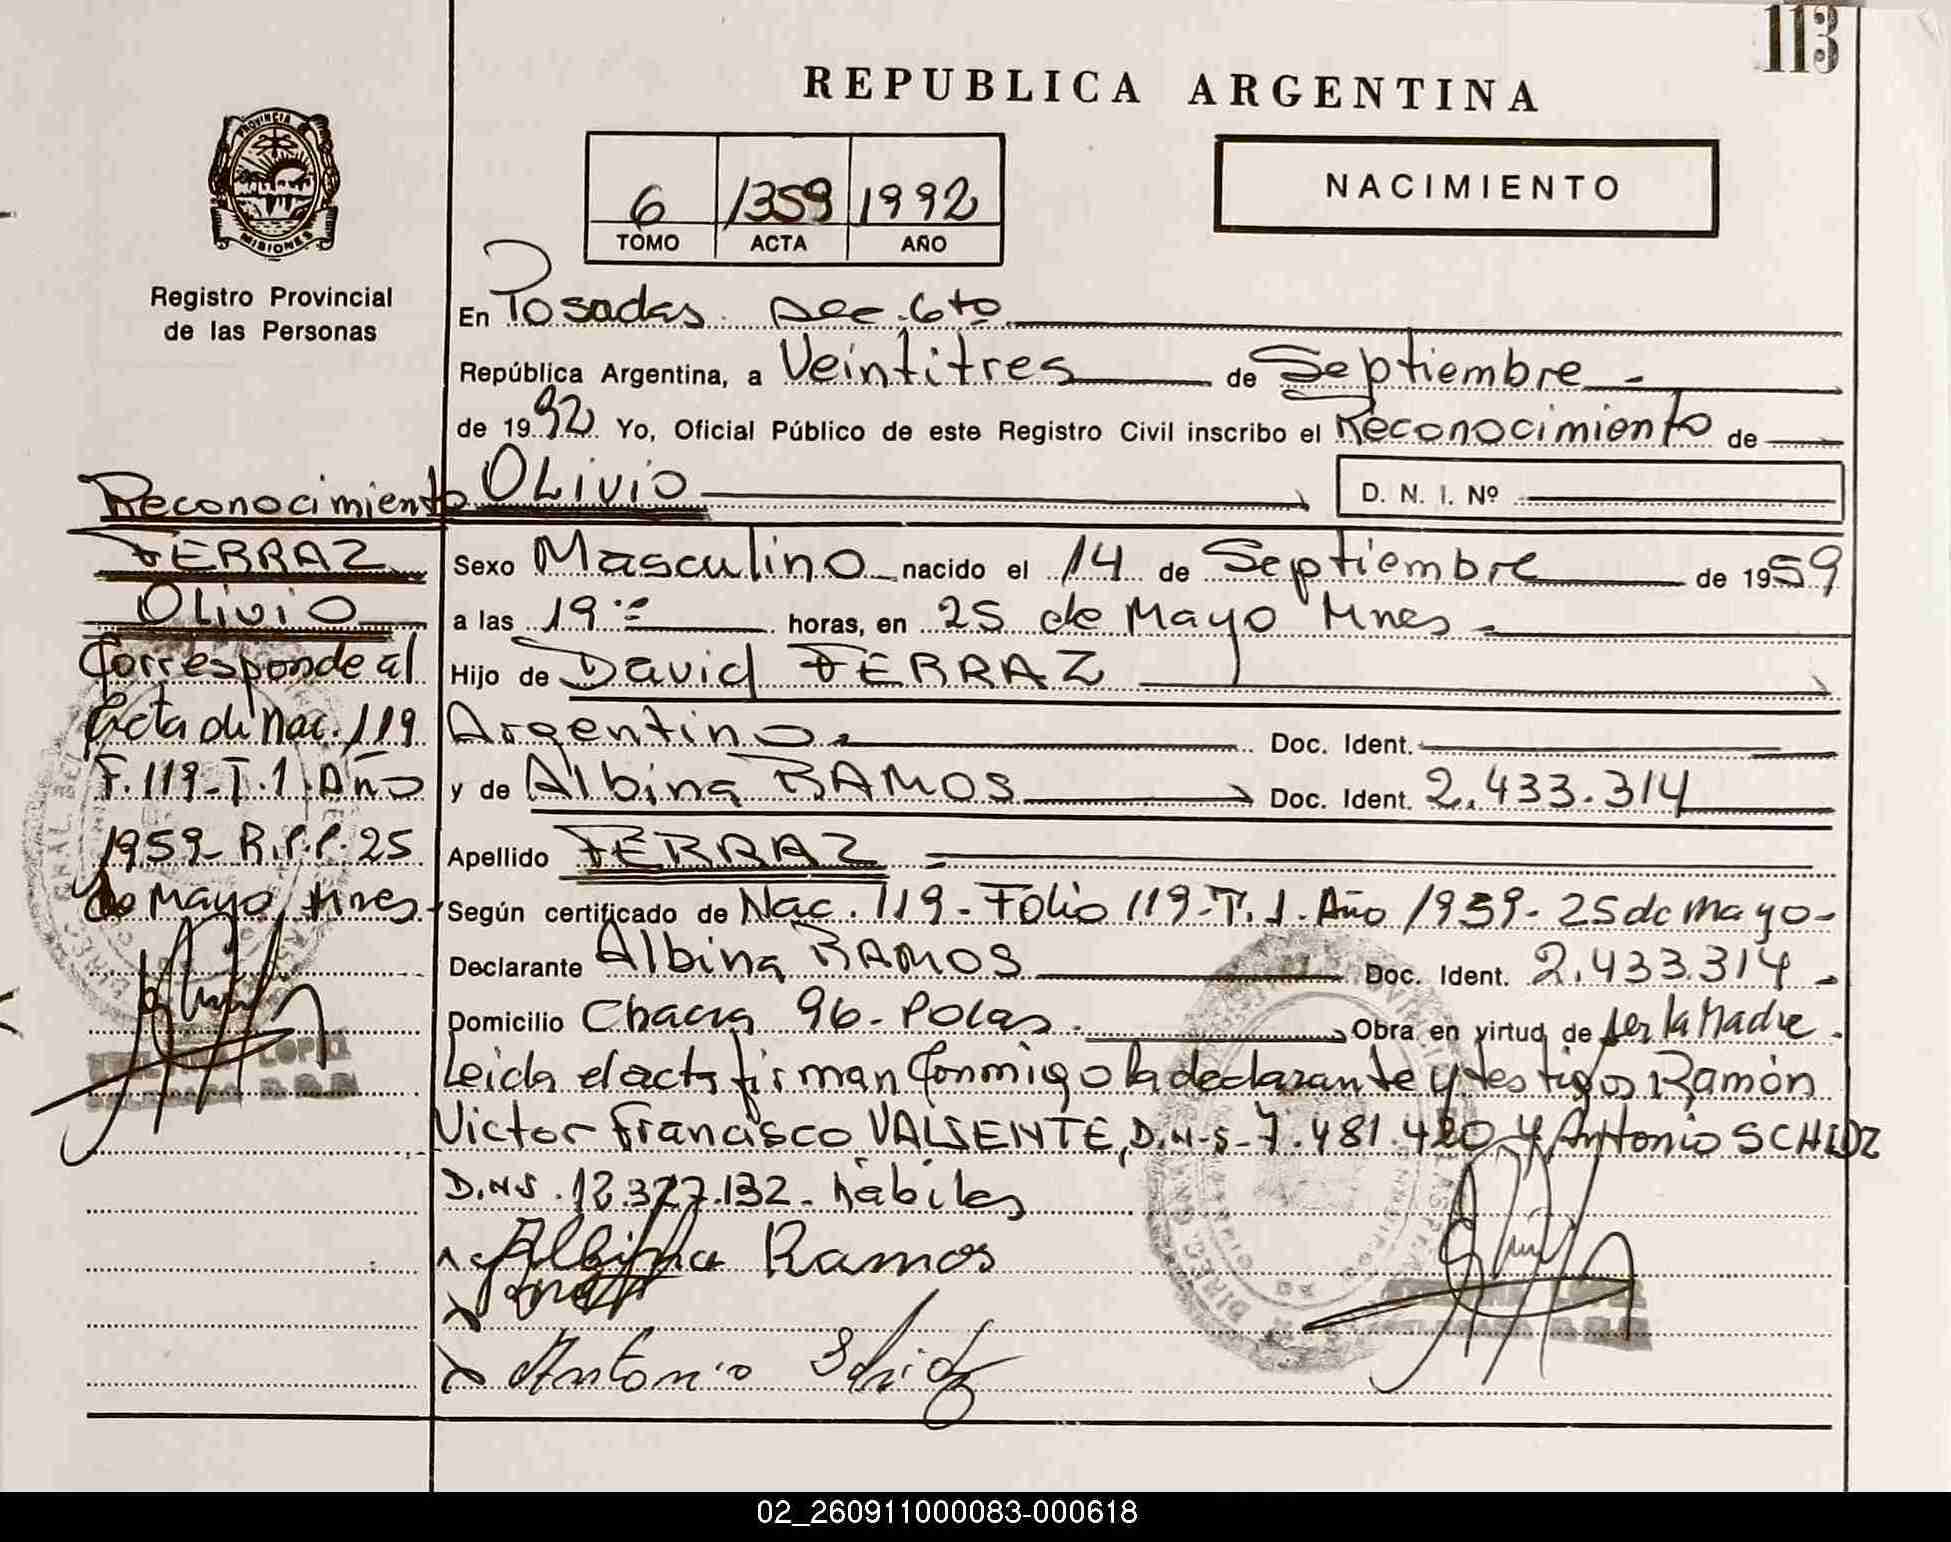 113
REPUBLICA ARGENTINA
PROVINCIA
MISIONES
Registro Provincial
de las Personas
6 1359 1992
TOMO ACTA AÑO
NACIMIENTO
En Posadas Sec. 6to
República Argentina, a Veintitres de Septiembre
de 1992 Yo, Oficial Público de este Registro Civil inscribo el Reconocimiento de
OLIVIO D. N. I. Nº
Sexo Masculino nacido el 14 de Septiembre de 1959
a las 19 horas, en 25 de Mayo Mnes
Hijo de David FERRAZ
Argentino Doc. Ident.
y de Albina RAMOS Doc. Ident. 2.433.314
Apellido FERRAZ
Según certificado de Nac. 119 - Folio 119 - T. 1. Año 1959 - 25 de mayo -
Declarante Albina RAMOS Doc. Ident. 2.433.314 -
Domicilio Chacra 96 - Pdas. Obra en virtud de ser la Madre.
Leida el acta firman Conmigo la declarante y testigos Ramón
Victor Francisco VALSENTE, D.N.I. 7.481.420 y Antonio
D.N.I. 12.327.132 - hábiles
Albina Ramos
Antonio
Reconocimiento
FERRAZ
Olivio
Corresponde al
Acta de Nac. 119
F. 119 - T. 1. Año
1959 R.P.P. 25
de Mayo, Mnes
02_260911000083-000618